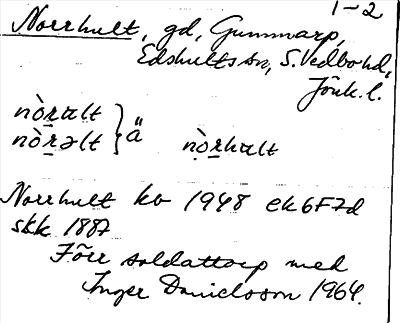 1-2
Norrhult, gd, Gummarp,
Edshults sn, S. Vedbo hd,
Jönk. l.
nòṟalt
nòṟəlt } ä nòṟhalt
Norrhult kb 1948 ek 6F7d
skk 1887
Förr soldattorp med
Inger Danielsson 1964.